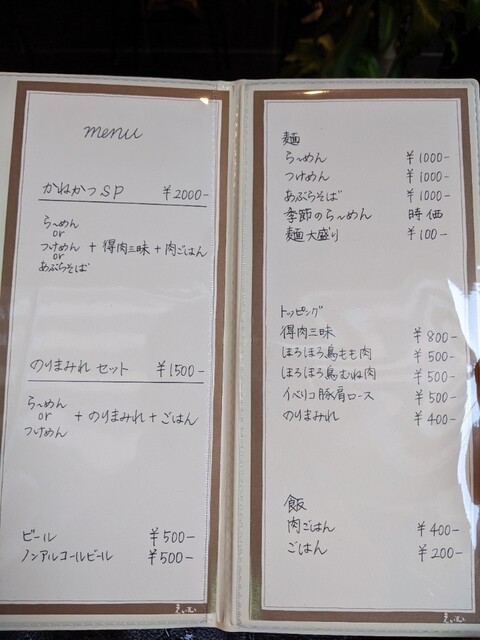 menu
かねかつSP ¥2000-
ら〜めん
or
つけめん + 得肉三昧 + 肉ごはん
or
あぶらそば
のりまみれ セット ¥1500-
ら〜めん
or + のりまみれ + ごはん
つけめん
ビール ¥500-
ノンアルコールビール ¥500-
麺
ら〜めん ¥1000-
つけめん ¥1000-
あぶらそば ¥1000-
季節のら〜めん 時価
麺大盛り ¥100-
トッピング
得肉三昧 ¥800-
ほろほろ鳥もも肉 ¥500-
ほろほろ鳥むね肉 ¥500-
イベリコ豚肩ロース ¥500-
のりまみれ ¥400-
飯
肉ごはん ¥400-
ごはん ¥200-